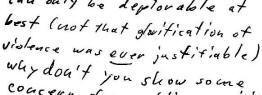 can only be deplorable at
best (not that glorification of
violence was ever justifiable)
why don't you show some
concern